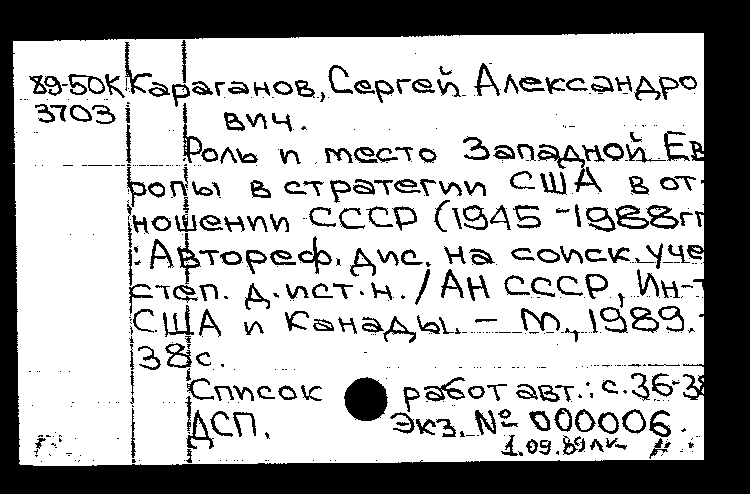 89-50К Караганов, Сергей Александро
3703 вич.
Роль и место Западной Ев
ропы в стратегии США в от-
ношении СССР (1945-1988гг
: Автореф. дис. на соиск. уче
степ. д. ист. н. / АН СССР, Ин-т
США и Канады. — М., 1989. -
38с.
Список работ авт.: с. 36-38
ДСП. Экз. № 000006.
1.09.89